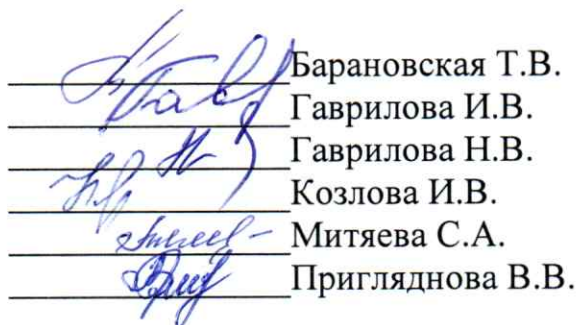 Барановская Т.В.
Гаврилова И.В.
Гаврилова Н.В.
Козлова И.В.
Митяева С.А.
Пригляднова В.В.